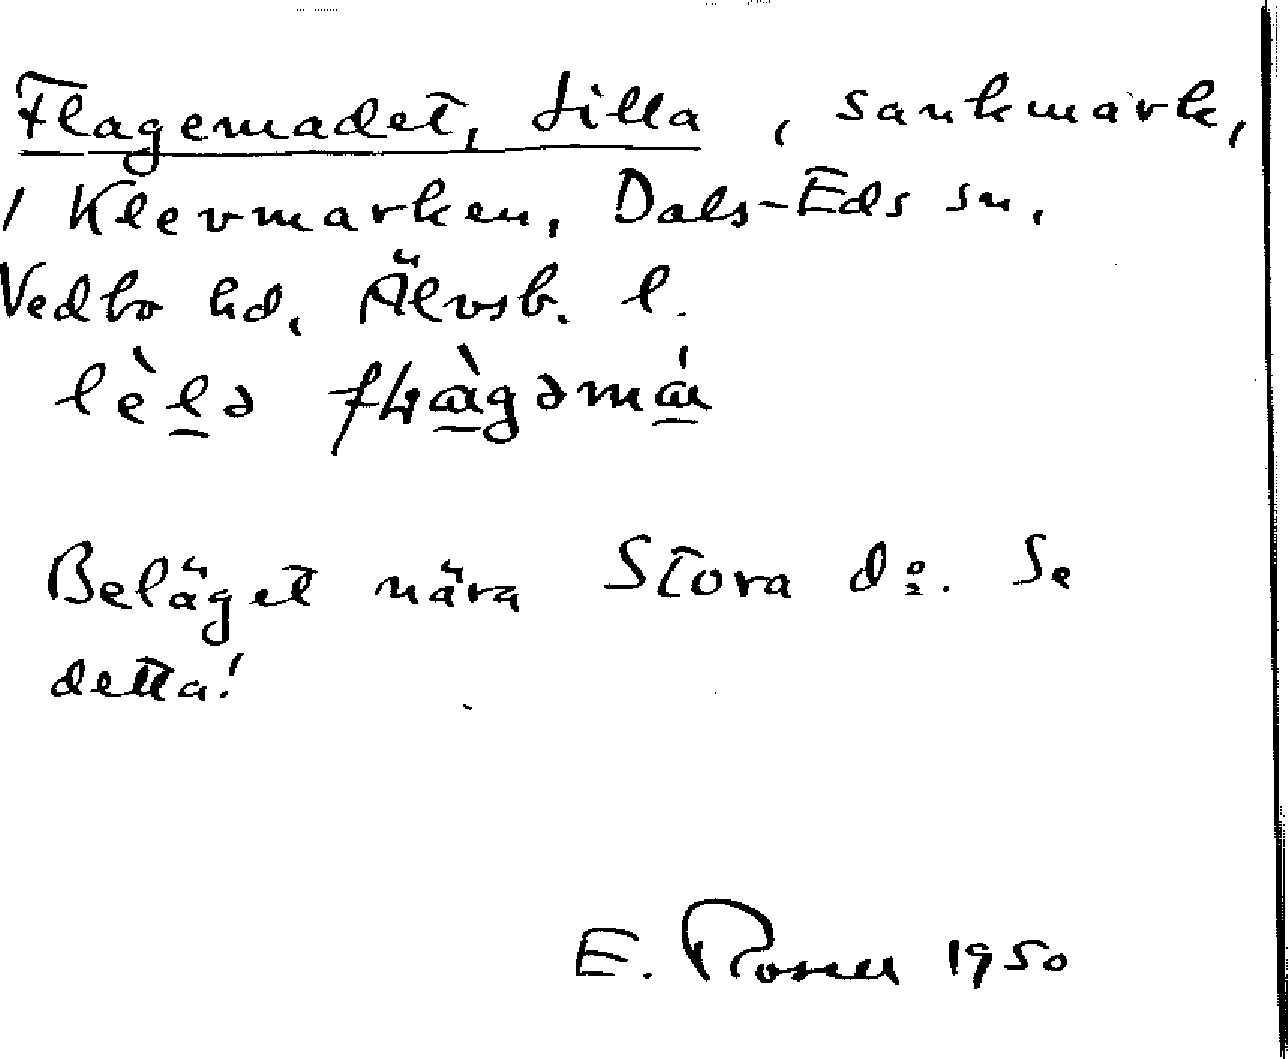 Flagemadet, Lilla, sankmark,
/ Klevmarken, Dals-Eds sn,
Vedbo hd, Älvsb. l.
Beläget nära Stora d:o. Se
detta!
E. Rosell 1950